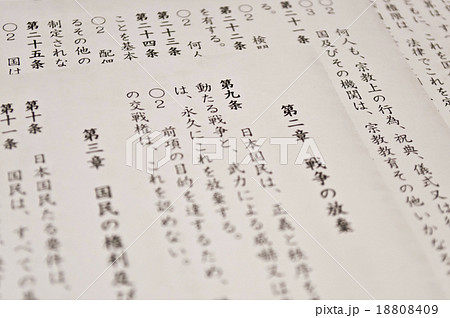 法律でこれを定
○2 何人も、宗教上の行為、祝典、儀式又は
○3 国及びその機関は、宗教教育その他いかなる
第二十一条
○2 検閲
第二十二条
を有する。
○2 何人
第二十三条
第二十四条
ことを基本
○2 配偶
るその他の
制定されな
第二十五条
○2 国は
第二章 戦争の放棄
第九条 日本国民は、正義と秩序を
動たる戦争と、武力による威嚇又は
は、永久にこれを放棄する。
○2 前項の目的を達するため、
の交戦権は、これを認めない。
第三章 国民の権利及び
第十条 日本国民たる要件は、
第十一条 国民は、すべての
PIXTA
pixta.jp - 18808409